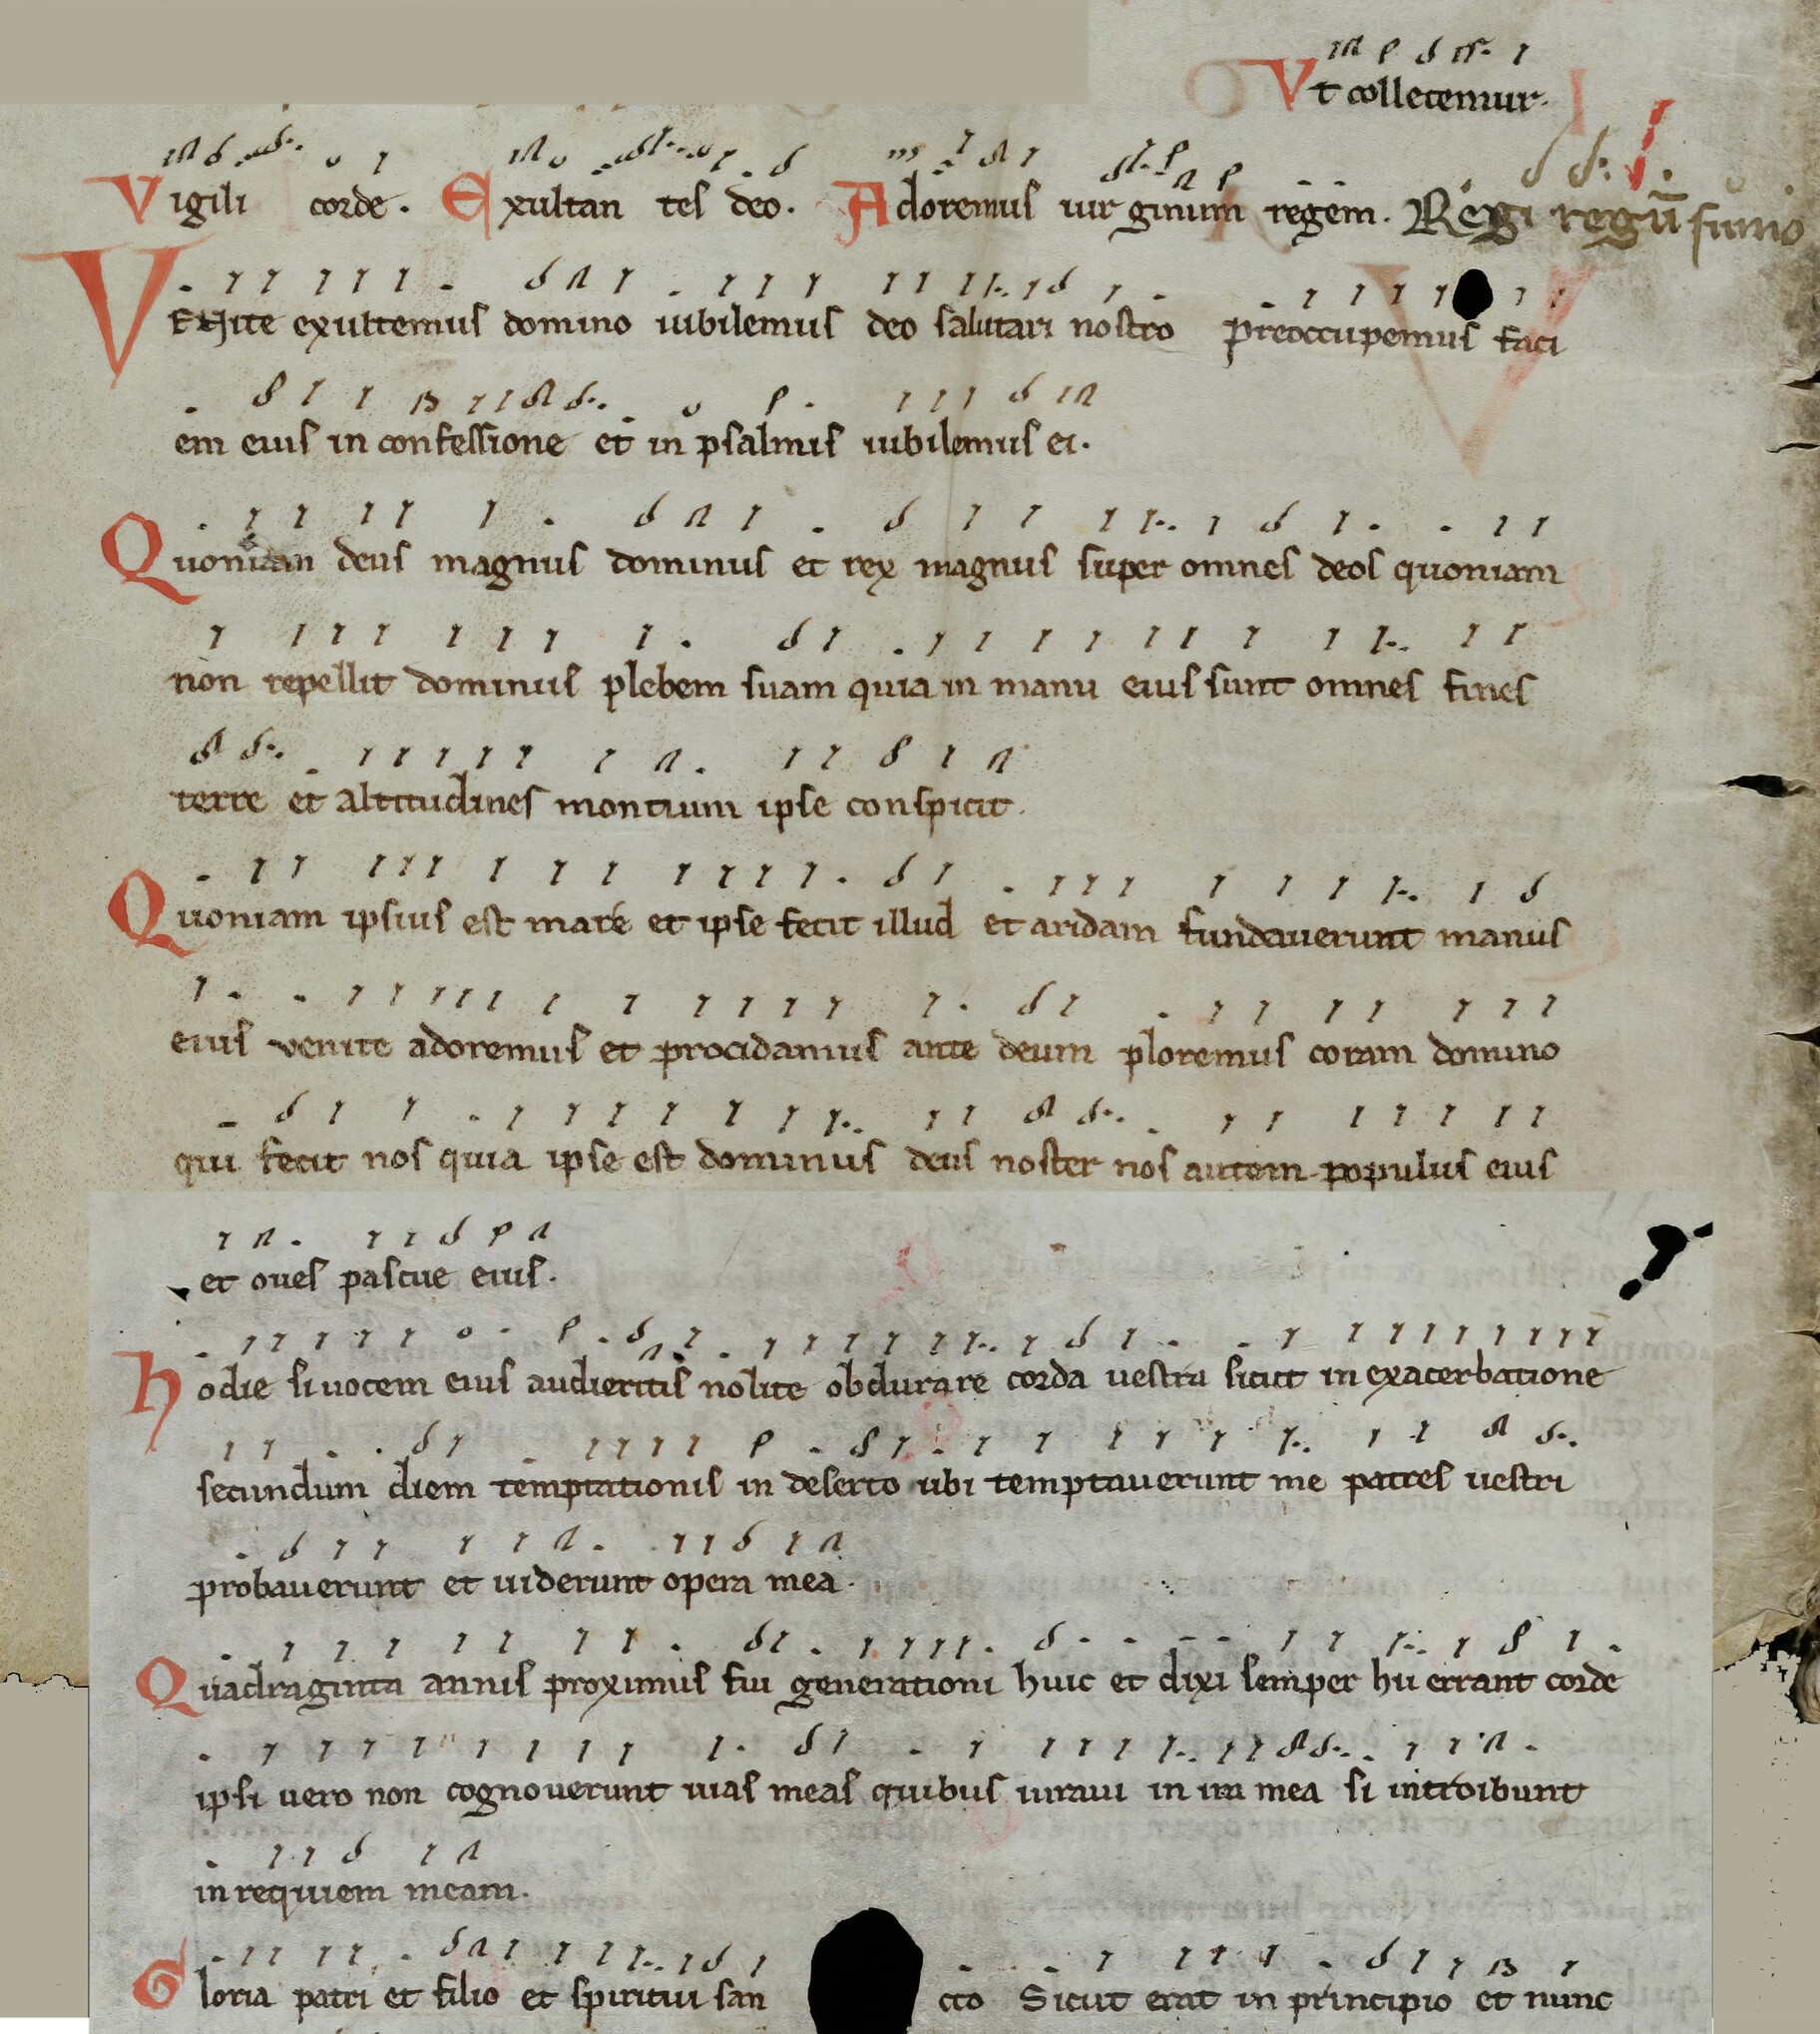 Vt colletemur.
Vigili corde. Exultan tes deo. Adoremus uir ginum regem. Regi regū sumo
VENite exultemus domino iubilemus deo salutari nostro preoccupemus faci
em eius in confessione et in psalmis iubilemus ei.
Quoniam deus magnus dominus et rex magnus super omnes deos quoniam
non repellit dominus plebem suam quia in manu eius sunt omnes fines
terre et altitudines montium ipse conspicit.
Quoniam ipsius est mare et ipse fecit illud et aridam fundauerunt manus
eius venite adoremus et procidamus ante deum ploremus coram domino
qui fecit nos quia ipse est dominus deus noster nos autem populus eius
et oues pascue eius.
hodie si uocem eius audieritis nolite obdurare corda uestra sicut in exacerbatione
secundum diem temptationis in deserto ubi temptauerunt me patres uestri
probauerunt et uiderunt opera mea.
Quadraginta annis proximus fui generationi huic et dixi semper hii errant corde
ipsi uero non cognouerunt uias meas quibus iuraui in ira mea si introibunt
in requiem meam.
Gloria patri et filio et spiritui san cto Sicut erat in principio et nunc